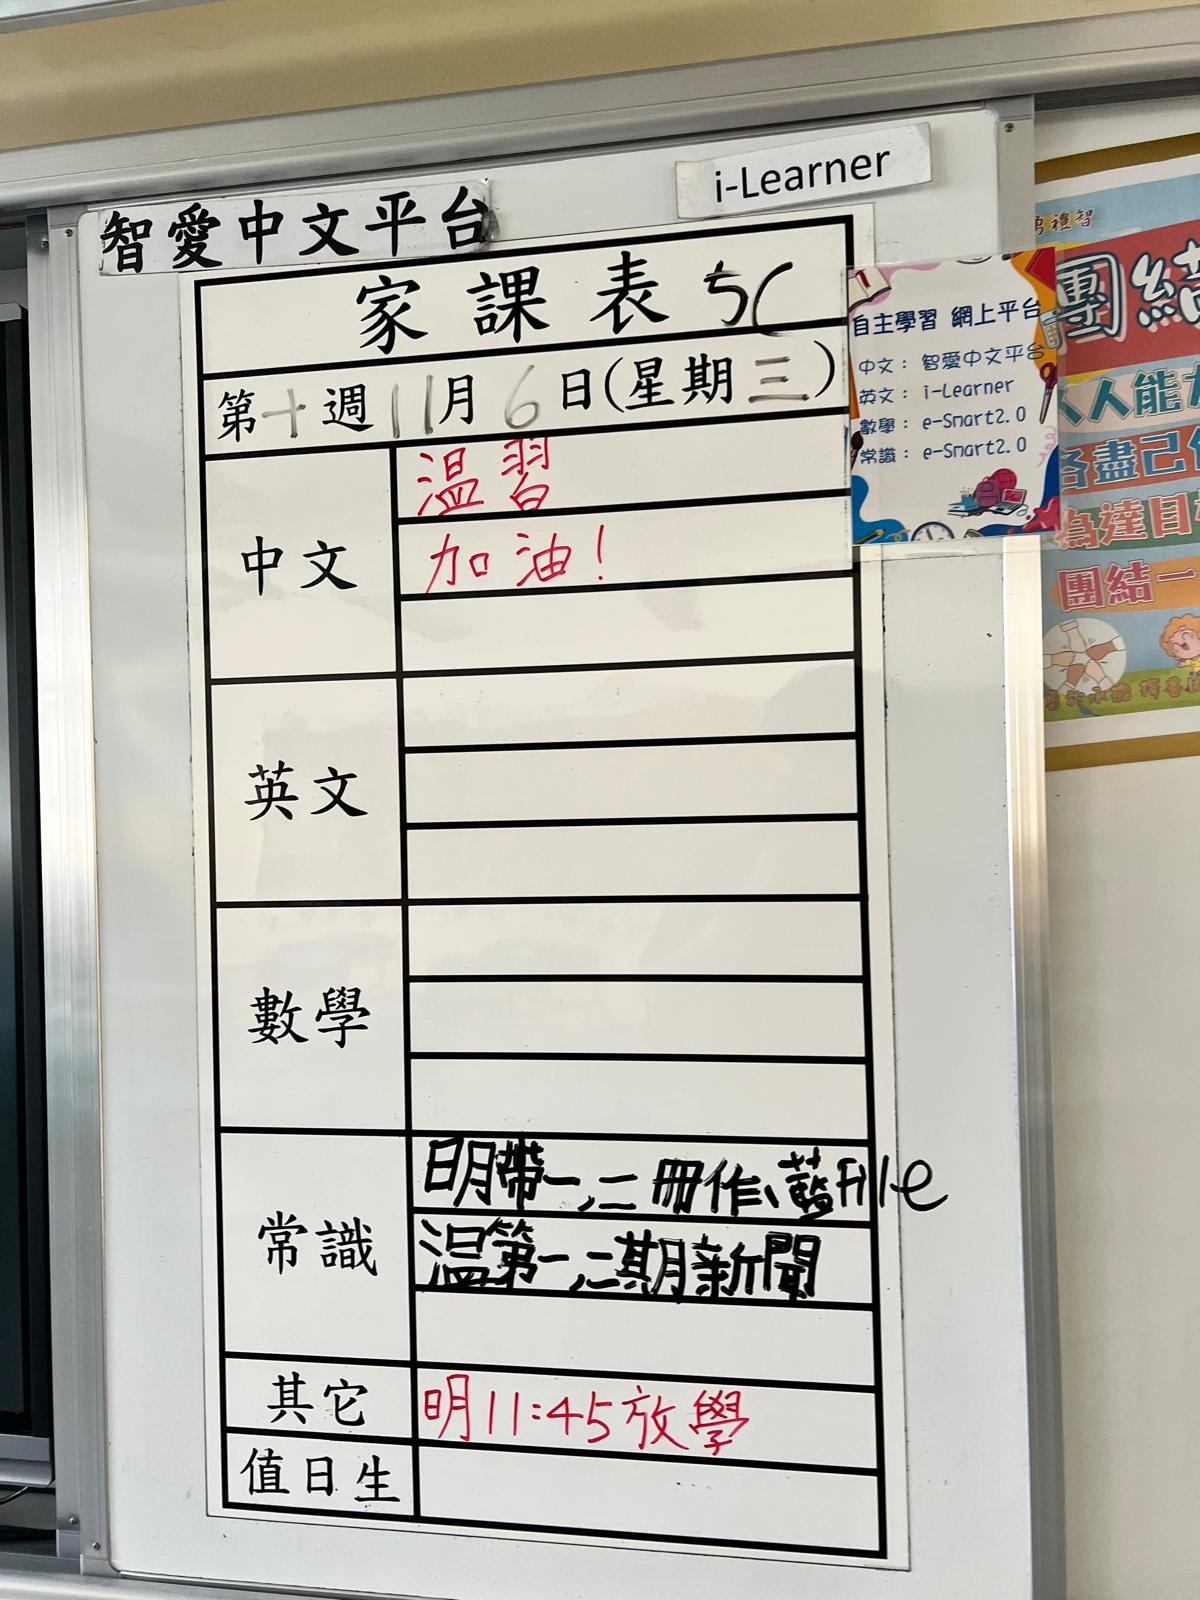 i-Learner
智愛中文平台
家課表 5C
第十週11月6日(星期三)
中文
温習
加油!
英文
數學
常識
明帶一,二冊作、藍File
温第一,二期新聞
其它
明11:45放學
值日生
自主學習 網上平台
中文: 智愛中文平台
英文: i-Learner
數學: e-Smart2.0
常識: e-Smart2.0
禮智
團績
人人能
各盡己
為達目
團結一